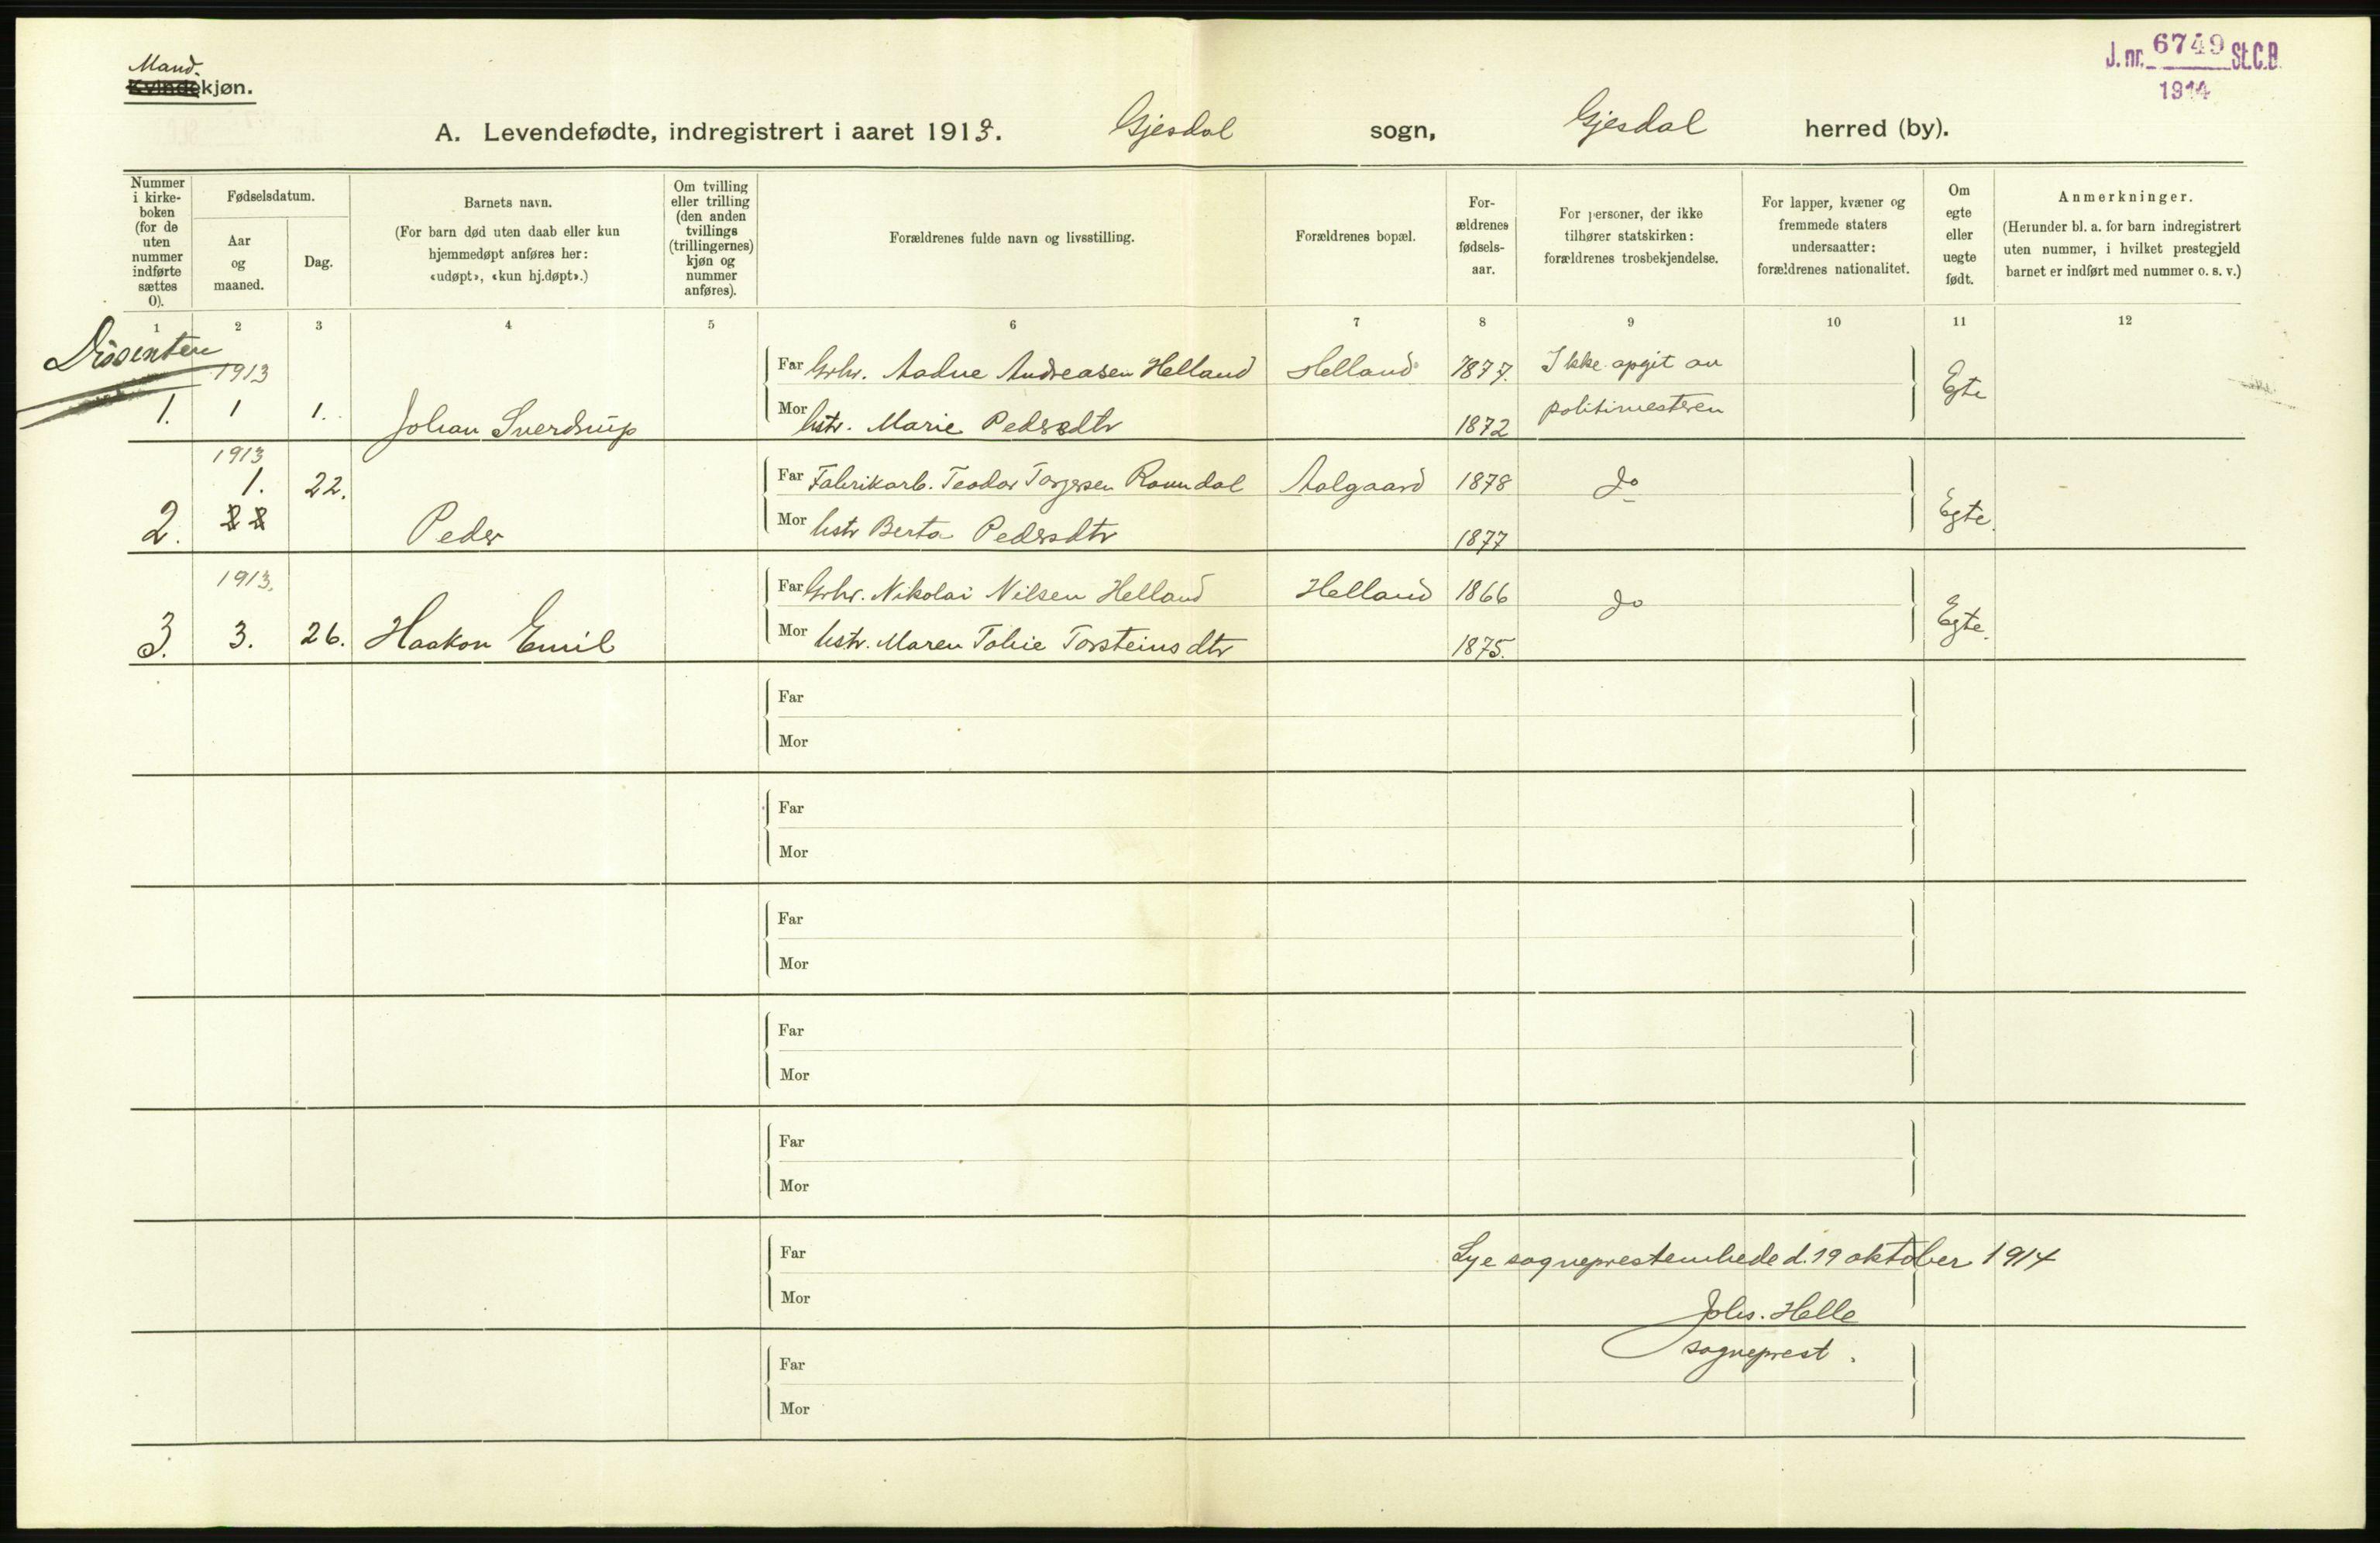 Mand.
Kvindekjøn.
J. nr. 6749 St.C.B.
1914
A. Levendefødte, indregistrert i aaret 1913. Gjesdal sogn, Gjesdal herred (by).
Nummer
i kirke-
boken
(for de
uten
nummer
indførte
sættes
0).
Fødselsdatum.
Aar
og
maaned.
Dag.
Barnets navn.
(For barn død uten daab eller kun
hjemmedøpt anføres her:
«udøpt», «kun hj.døpt».)
Om tvilling
eller trilling
(den anden
tvillings
(trillingernes)
kjøn og
nummer
anføres).
Forældrenes fulde navn og livsstilling.
Forældrenes bopæl.
For-
ældrenes
fødsels-
aar.
For personer, der ikke
tilhører statskirken:
forældrenes trosbekjendelse.
For lapper, kvæner og
fremmede staters
undersaatter:
forældrenes nationalitet.
Om
egte
eller
uegte
født.
Anmerkninger.
(Herunder bl. a. for barn indregistrert
uten nummer, i hvilket prestegjeld
barnet er indført med nummer o. s. v.)
1 2 3 4 5 6 7 8 9 10 11 12
Dissentere
1913
Far Grbr. Aadne Andreasen Helland Helland 1877. Ikke opgit av
1. 1 1. Johan Sverdrup Mor hstr. Marie Pedersdtr 1872 politimesteren Egte
1913
1. 22. Far Fabrikarb. Teodor Torgersen Ravndal Aalgaard 1878 Do
2. Peder Mor hstr Berta Pedersdtr 1877 Egte.
1913.
Far Grbr. Nikolai Nilsen Helland Helland 1866 Do
3. 3. 26. Haakon Emil Mor hstr. Maren Tobie Torsteinsdtr 1875. Egte.
Far
Mor
Far
Mor
Far
Mor
Far
Mor
Far
Mor
Far
Lye sogneprestembede d. 19 oktober 1914
Mor
Johs. Helle
sogneprest.
Far
Mor